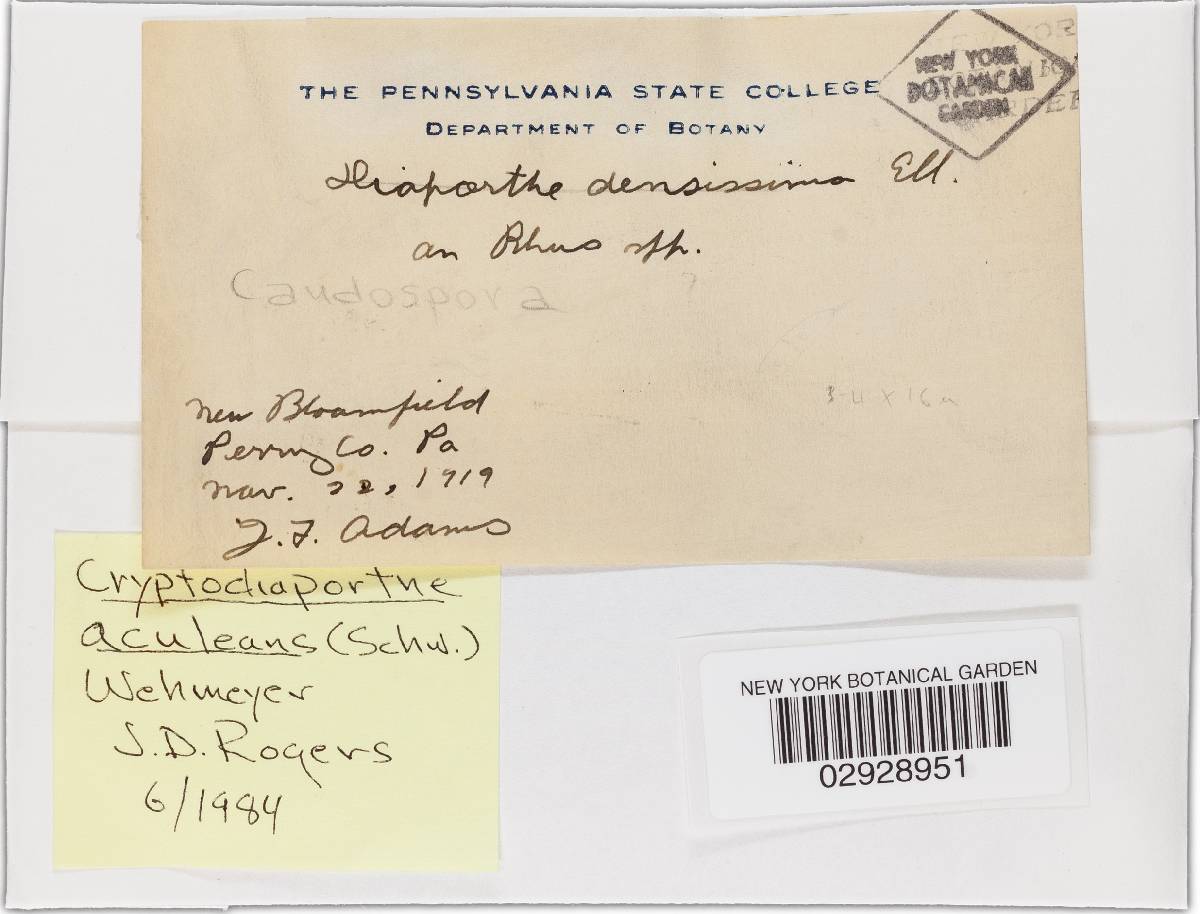 THE PENNSYLVANIA STATE COLLEGE
DEPARTMENT OF BOTANY
NEW YORK
BOTANICAL
GARDEN
Diaporthe densissima Ell.
on Rhus spp.
Caudospora
?
3-4 x 16 u
New Bloomfield
Perry Co. Pa
Nov. 22, 1919
J. F. Adams
Cryptodiaporthe
aculeans (Schw.)
Wehmeyer
J.D. Rogers
6/1984
NEW YORK BOTANICAL GARDEN
02928951